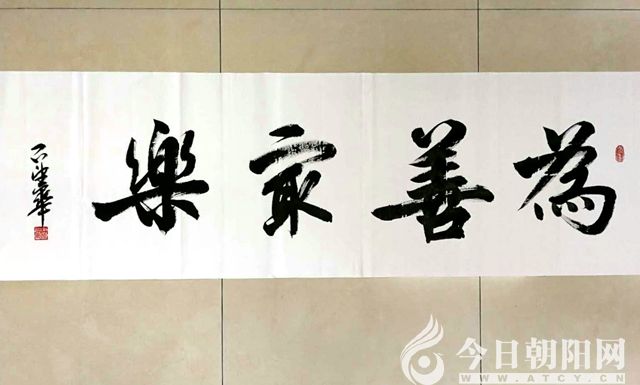 為善最樂
今日朝阳网
WWW.ATCY.CN